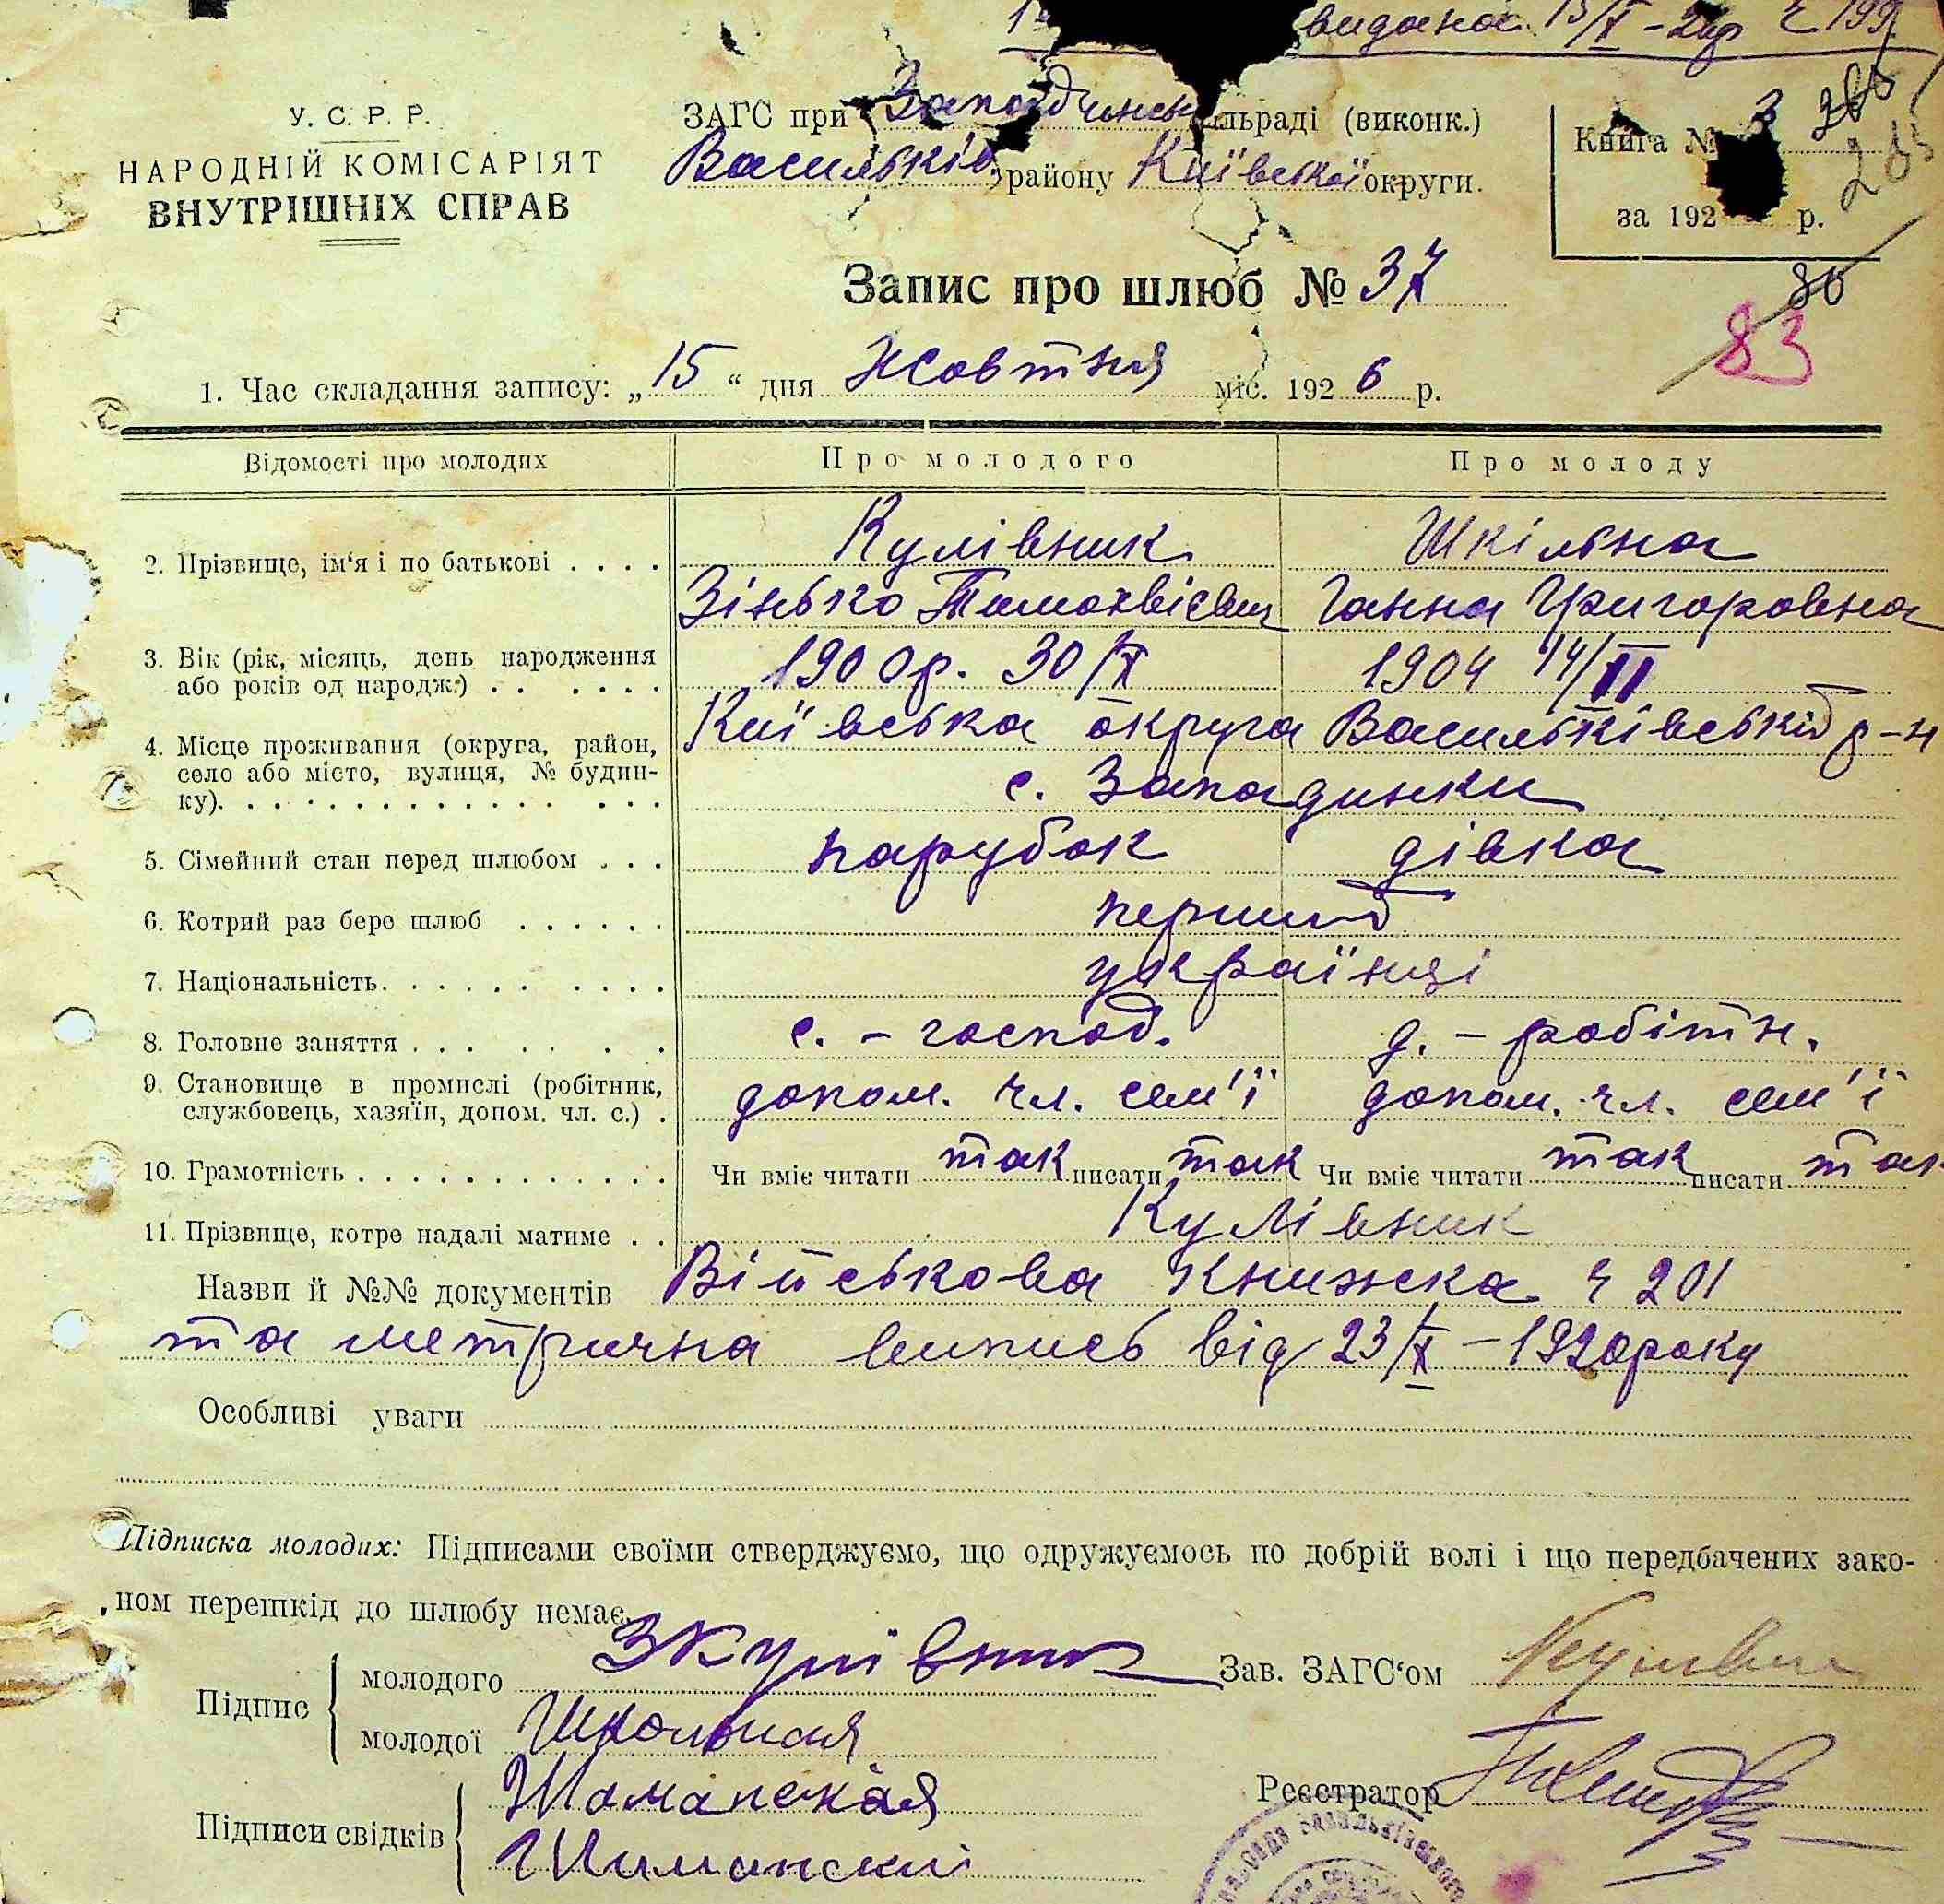 видана 15/X – 26р ч 199
У. С. Р. Р.
НАРОДНІЙ КОМІСАРІЯТ
ВНУТРІШНІХ СПРАВ
ЗАГС при Западинськ ільраді (виконк.)
Васильків. району Київської округи.
Книга № 3
за 192 р.
Запис про шлюб № 37
80
83
1. Час складання запису: „15“ дня Жовтня міс. 1926 р.
Відомості про молодих Про молодого Про молоду
2. Прізвище, ім‘я і по батькові . . . . Кулівник Шкільна
Зінько Тимохвієвич Ганна Григоровна
3. Вік (рік, місяць, день народження або років од народж.) . . . . . . 1900р. 30/X 1904 14/II
4. Місце проживання (округа, район, село або місто, вулиця, № будинку). Київська округа Васильківський р-н
с. Западинки
5. Сімейний стан перед шлюбом . . . парубок дівка
6. Котрий раз бере шлюб . . . . . . перший
7. Національність. . . . . . . . . . українці
8. Головне заняття . . . . . . . с. – господ. д. – робітн.
9. Становище в промислі (робітник, службовець, хазяїн, допом. чл. с.) . допом. чл. сем'ї допом. чл. сем'ї
10. Грамотність . . . . . . . . . . . . . Чи вміє читати так писати так Чи вміє читати так писати так
11. Прізвище, котре надалі матиме . . Кулівник
Назви й №№ документів Військова книжка ч 201
та метрична випись від 23/X – 1920року
Особливі уваги
Підписка молодих: Підписами своїми стверджуємо, що одружуємось по добрій волі і що передбачених зако-
ном перешкід до шлюбу немає.
Підпис { молодого ЗКулівник Зав. ЗАГС‘ом
молодої Школьная
Підписи свідків { Шаманская Реєстратор
Шиманский